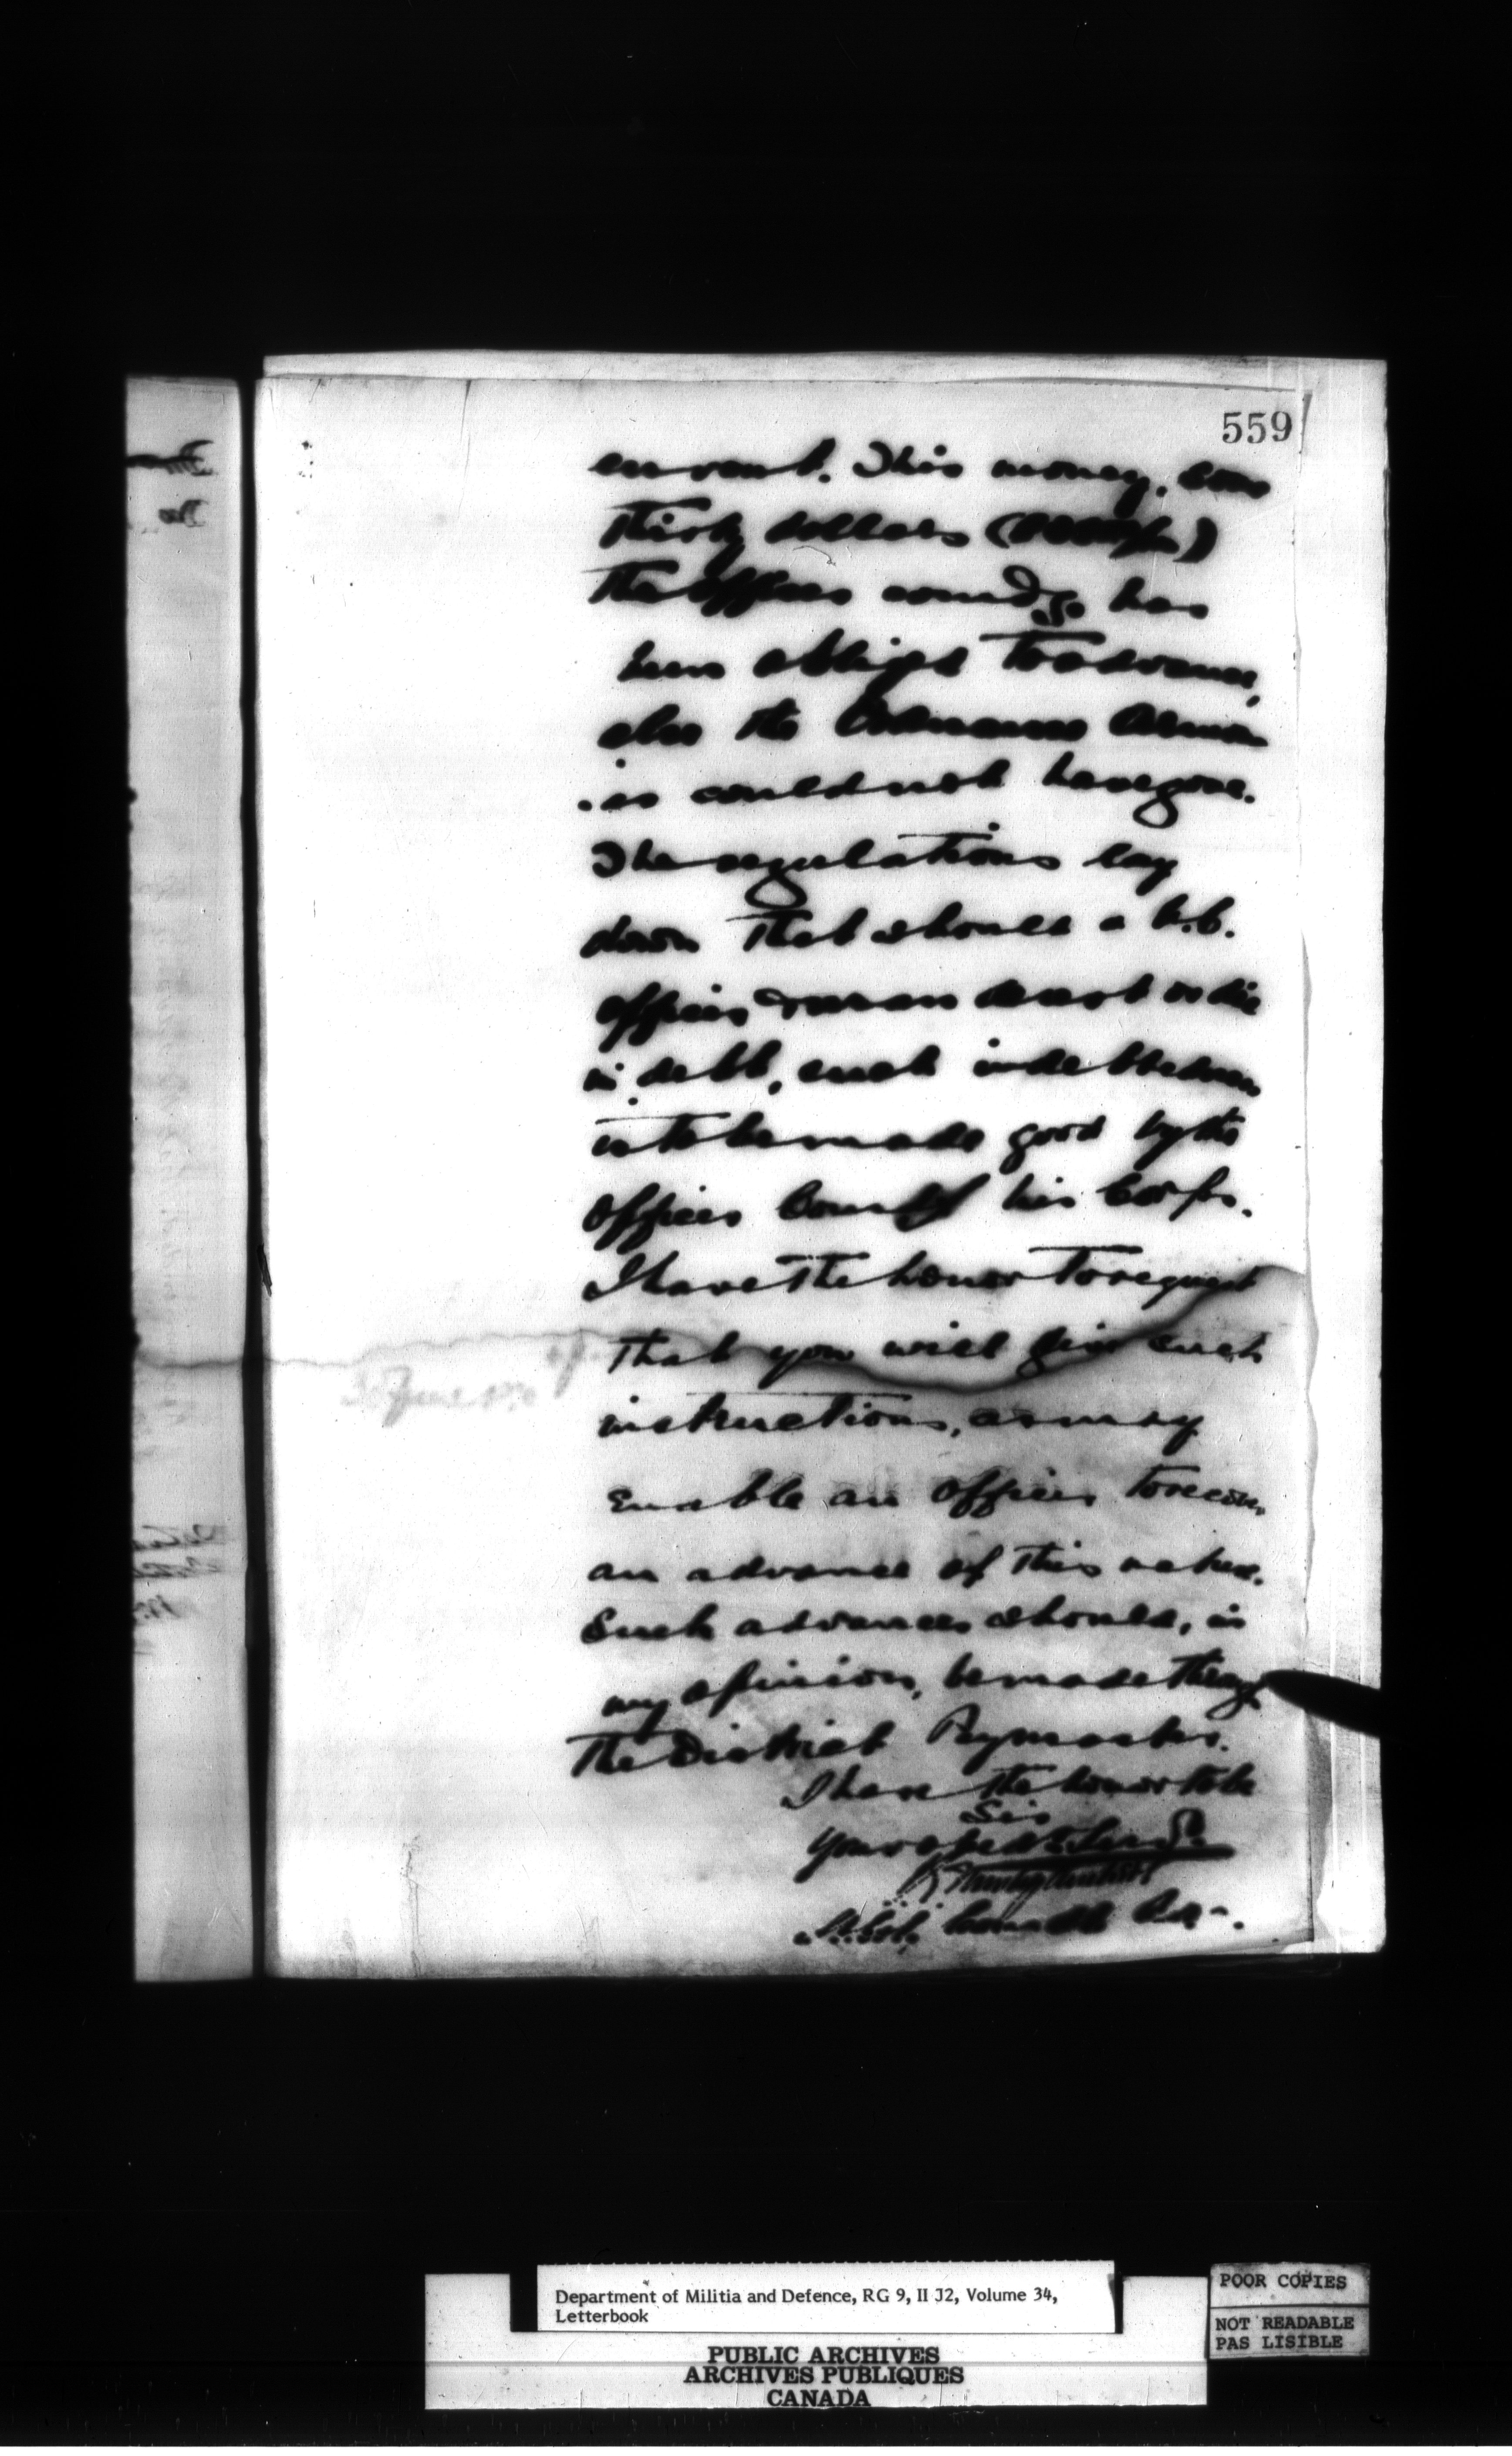 559
This money, some
thirty dollars
the officer comdg. has
been obliged to advance,
also the
could not have gone.
The regulations lay
down that should a N.C.
officer or man desert or die
in debt, such indebtedness
is to be made good by the
officer Comdg his Corps.
I have the honor to request
that you will give such
instructions, as may
enable an officer to recover
an advance of this nature.
Such advances should, in
my opinion, be made through
the District Paymaster.
I have the honor to be
Sir
Your obedt Servt
Lt. Col. Comdt
Department of Militia and Defence, RG 9, II J2, Volume 34,
Letterbook
POOR COPIES
NOT READABLE
PAS LISIBLE
PUBLIC ARCHIVES
ARCHIVES PUBLIQUES
CANADA